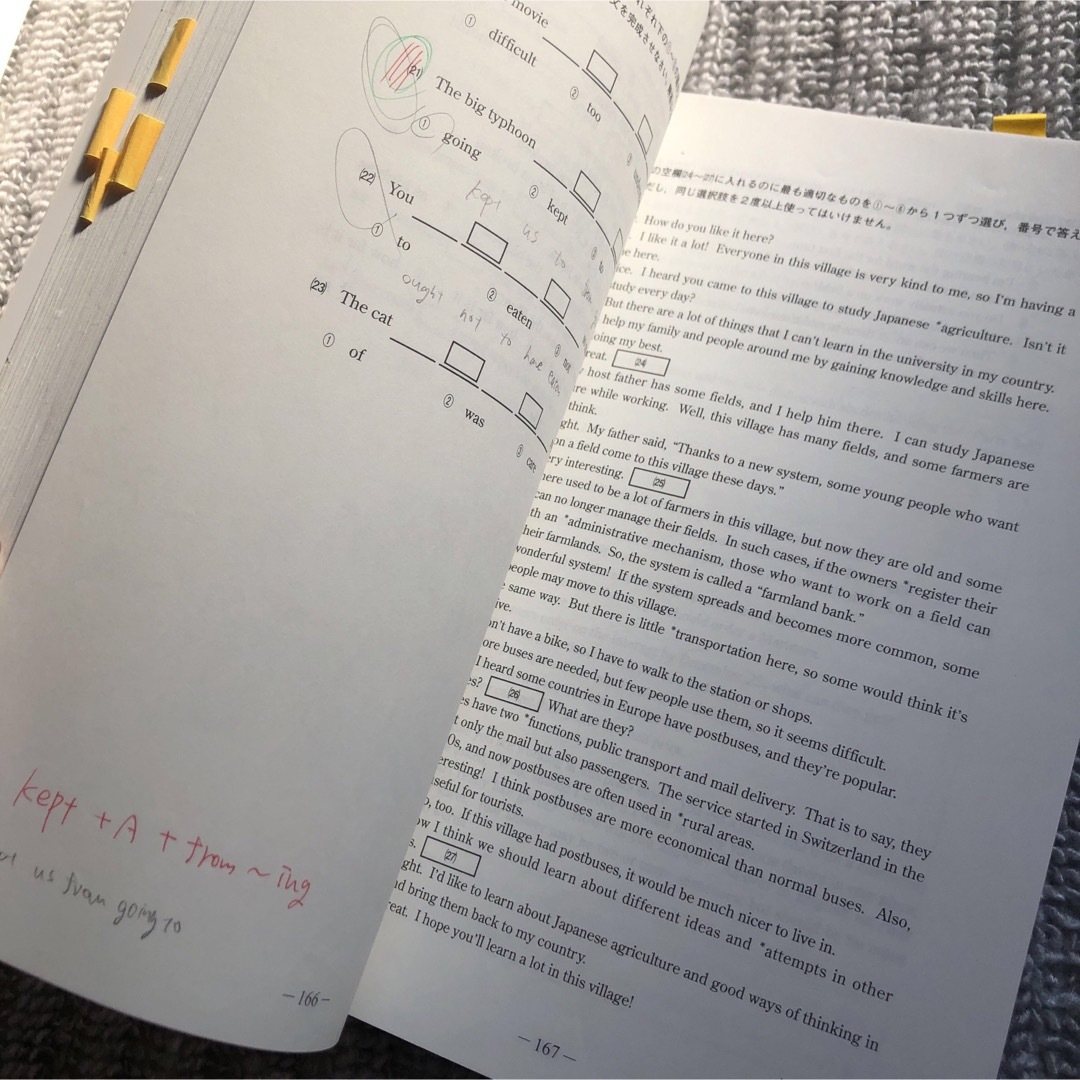 movie
① difficult ② too
(21) The big typhoon
① going ② kept ③ to
kept us to
(22) You
① to ② eaten ③ not
ought not to have eaten
(23) The cat
① of ② was ③ care
kept + A + from ~ ing
us from going to
—166—
の空欄(24)〜(27)に入れるのに最も適切なものを①〜⑥から1つずつ選び，番号で答え
だし，同じ選択肢を2度以上使ってはいけません。
How do you like it here?
I like it a lot! Everyone in this village is very kind to me, so I'm having a
here.
I heard you came to this village to study Japanese *agriculture. Isn't it
study every day?
But there are a lot of things that I can't learn in the university in my country.
help my family and people around me by gaining knowledge and skills here.
doing my best.
(24)
host father has some fields, and I help him there. I can study Japanese
while working. Well, this village has many fields, and some farmers are
think.
My father said, "Thanks to a new system, some young people who want
on a field come to this village these days."
interesting. (25)
used to be a lot of farmers in this village, but now they are old and some
can no longer manage their fields. In such cases, if the owners *register their
an *administrative mechanism, those who want to work on a field can
their farmlands. So, the system is called a "farmland bank."
wonderful system! If the system spreads and becomes more common, some
people may move to this village.
same way. But there is little *transportation here, so some would think it's
don't have a bike, so I have to walk to the station or shops.
more buses are needed, but few people use them, so it seems difficult.
I heard some countries in Europe have postbuses, and they're popular.
(26) What are they?
have two *functions, public transport and mail delivery. That is to say, they
only the mail but also passengers. The service started in Switzerland in the
and now postbuses are often used in *rural areas.
I think postbuses are more economical than normal buses. Also,
useful for tourists.
too. If this village had postbuses, it would be much nicer to live in.
I think we should learn about different ideas and *attempts in other
(27)
I'd like to learn about Japanese agriculture and good ways of thinking in
and bring them back to my country.
I hope you'll learn a lot in this village!
—167—